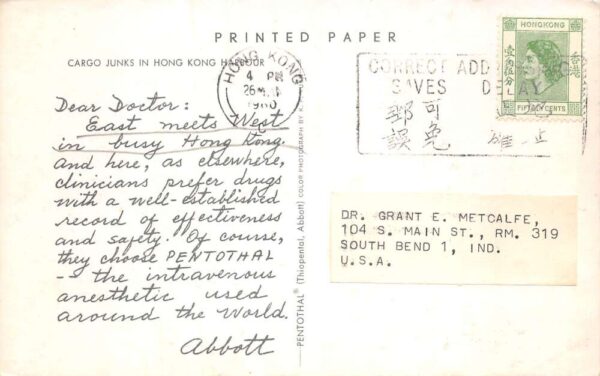 PRINTED PAPER
CARGO JUNKS IN HONG KONG HARBOUR
HONG KONG
4 PM
26
1960
CORRECT ADD
SAVES DELAY
郵 可
誤 免
HONGKONG
香港
壹角伍分
FIFTEEN CENTS
Dear Doctor:
East meets West
in busy Hong Kong.
And here, as elsewhere,
clinicians prefer drugs
with a well-established
record of effectiveness
and safety. Of course,
they choose PENTOTHAL
- the intravenous
anesthetic used
around the World.
Abbott
PENTOTHAL® (Thiopental, Abbott) COLOR PHOTOGRAPH BY
DR. GRANT E. METCALFE,
104 S. MAIN ST., RM. 319
SOUTH BEND 1, IND.
U.S.A.